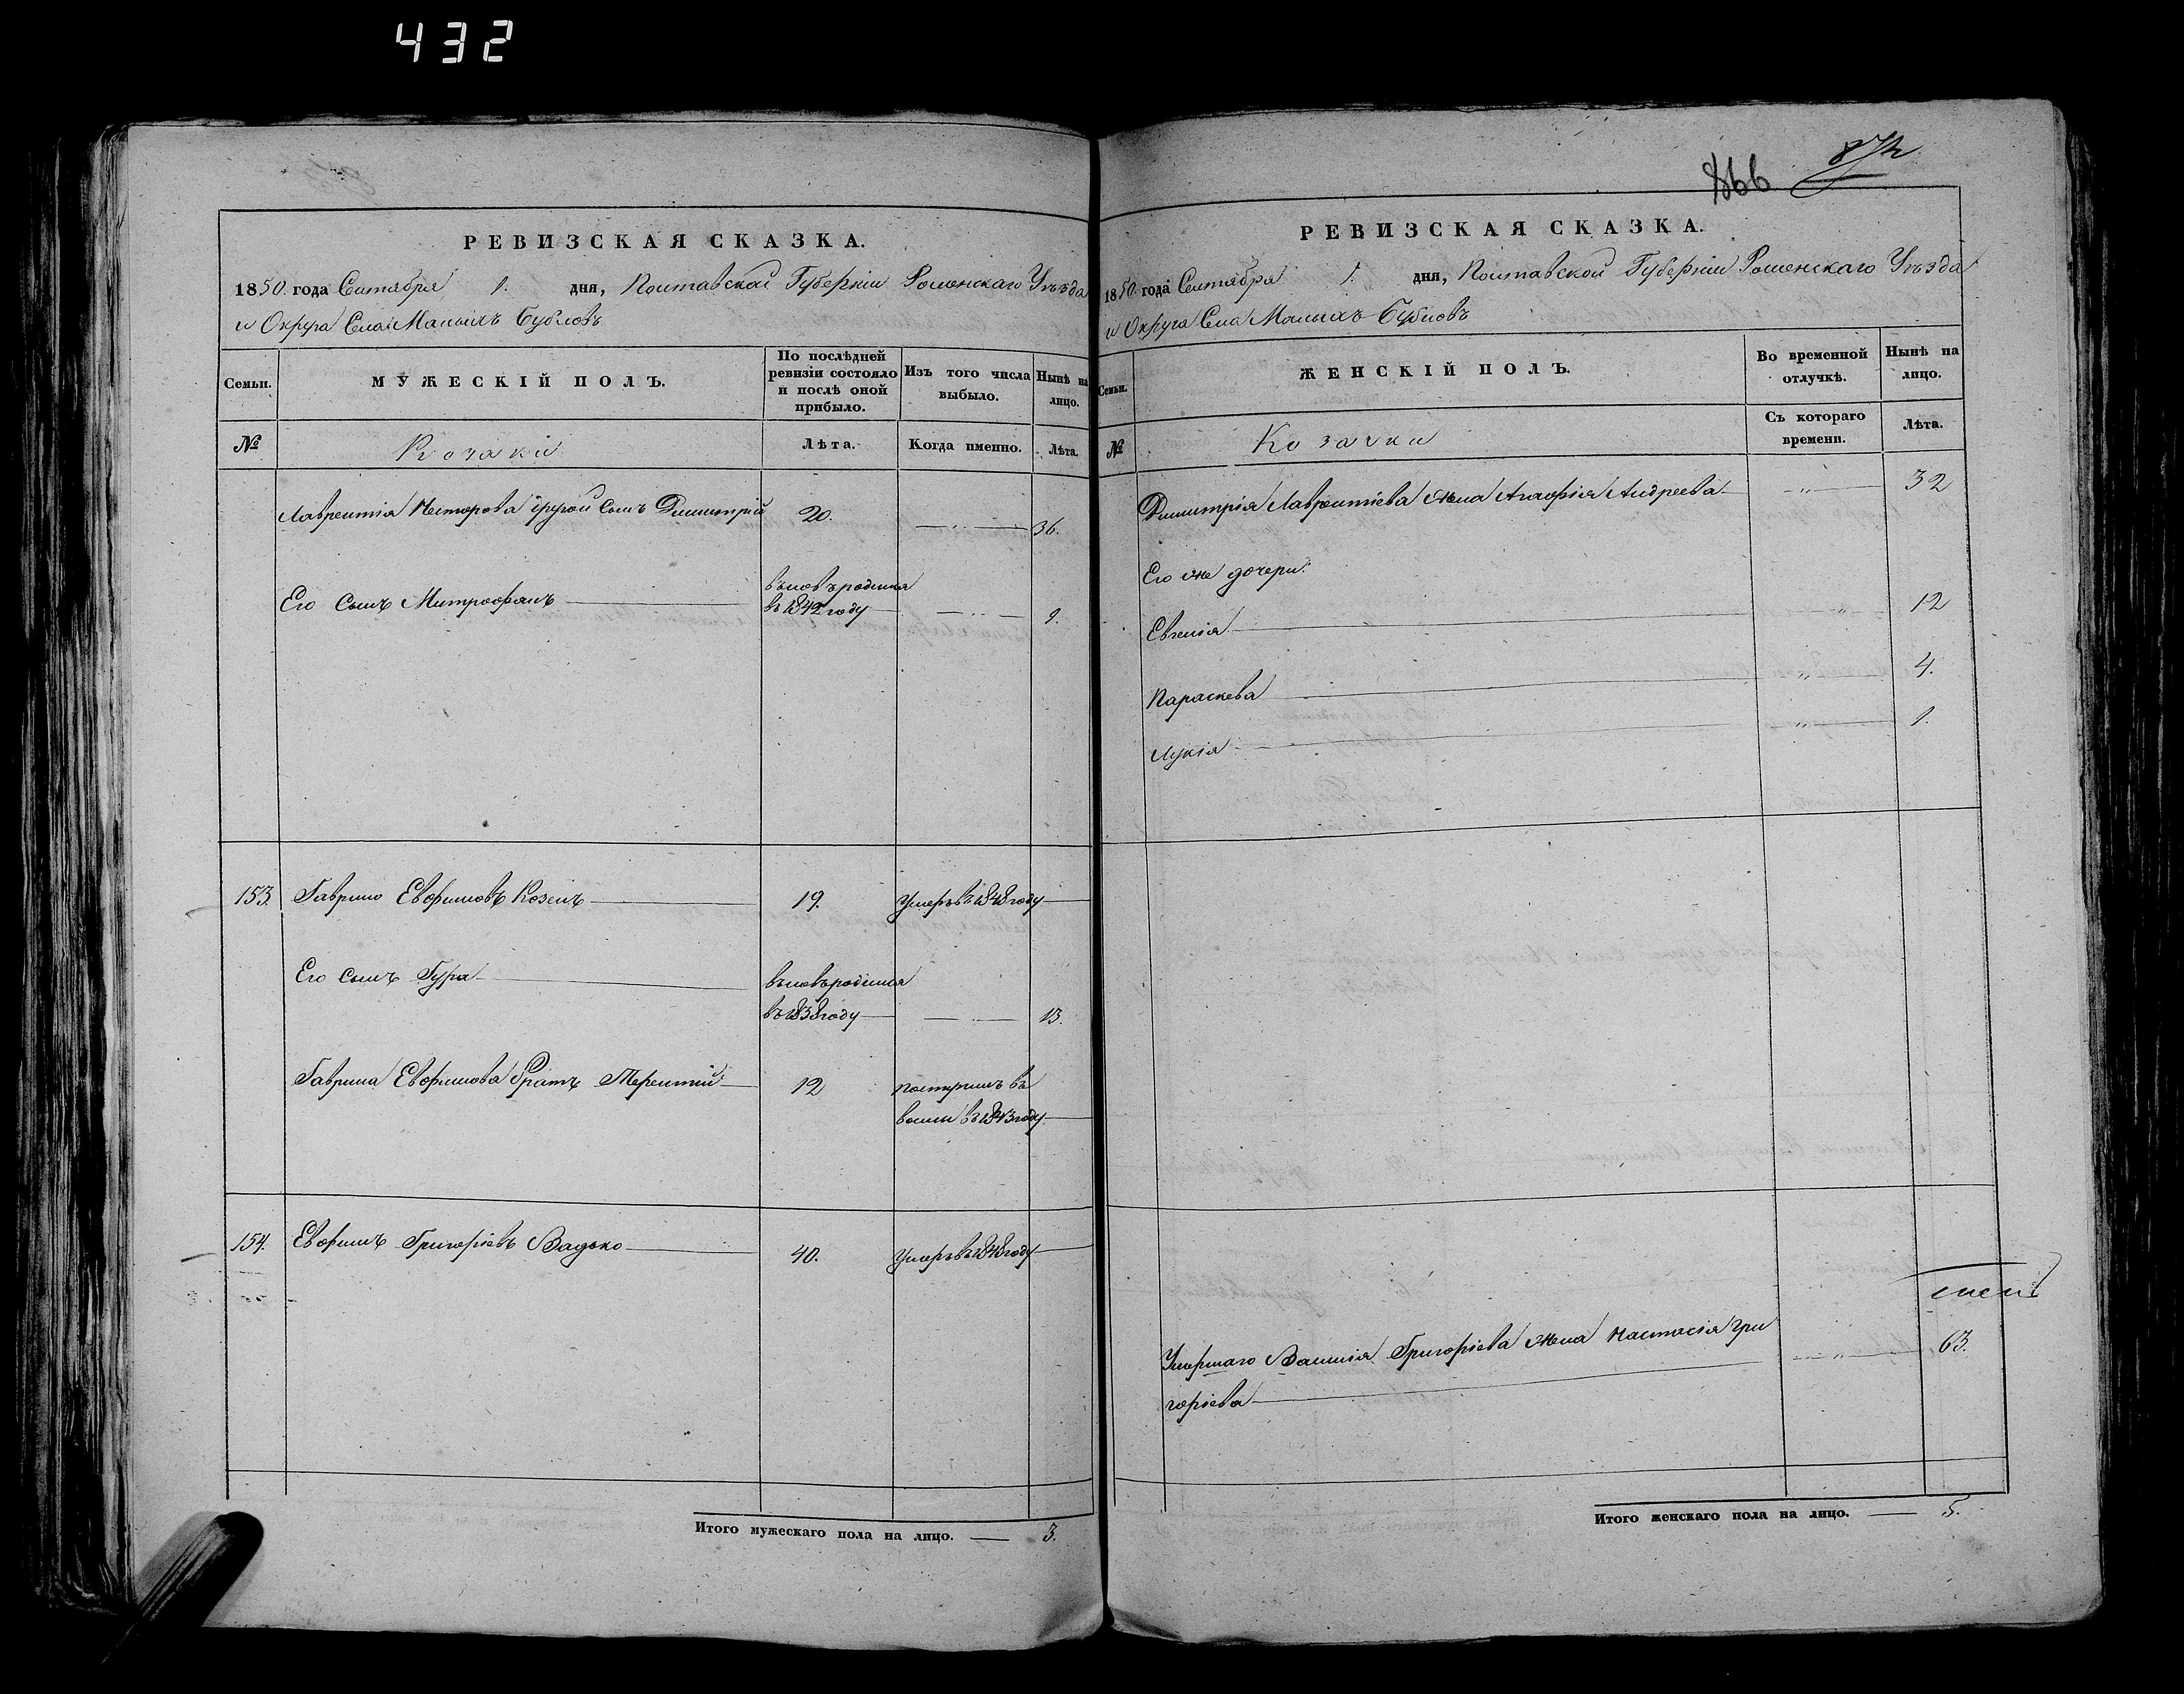 432
866
РЕВИЗСКАЯ СКАЗКА.
1850 года Сентября 1. дня, Полтавской Губерніи Роменскаго Уѣзда
и Округа Села Малыхъ Бубновъ
Семьи.
МУЖЕСКІЙ ПОЛЪ.
По послѣдней ревизіи состояло и послѣ оной прибыло.
Изъ того числа выбыло.
Нынѣ на лицо.
№
Козаки
Лѣта.
Когда именно.
Лѣта.
Лаврентія Нестерова другой сынъ Димитрій 20. — " — 36.
вновь родился
Его сынъ Митрофанъ — въ 1842 году — " — 9.
153. Гаврило Евфимовъ Козелъ — 19. умеръ въ 1848 году —
Его сынъ Гура — вновь родился
въ 1838 году — 13.
Гаврила Евфимова братъ Терентій — 12 поступилъ въ
въ 1843 году —
154. Евфимъ Григоріевъ Вадько — 40. умеръ въ 1848 году —
Итого мужескаго пола на лицо. — 3.
РЕВИЗСКАЯ СКАЗКА.
1850 года Сентября 1. дня, Полтавской Губерніи Роменскаго Уѣзда
и Округа Села Малыхъ Бубновъ
Семьи.
ЖЕНСКІЙ ПОЛЪ.
Во временной отлучкѣ.
Нынѣ на лицо.
№
Козачки
Съ котораго времени.
Лѣта.
Димитрія Лаврентіева жена Агафія Андреева — " — 32
Его же дочери:
Евгенія — " — 12
Параскева — " — 4.
Лукія — " — 1.
Умершаго Василія Григоріева жена Настасія Гри
горіева — " — 63.
Итого женскаго пола на лицо. — 5.